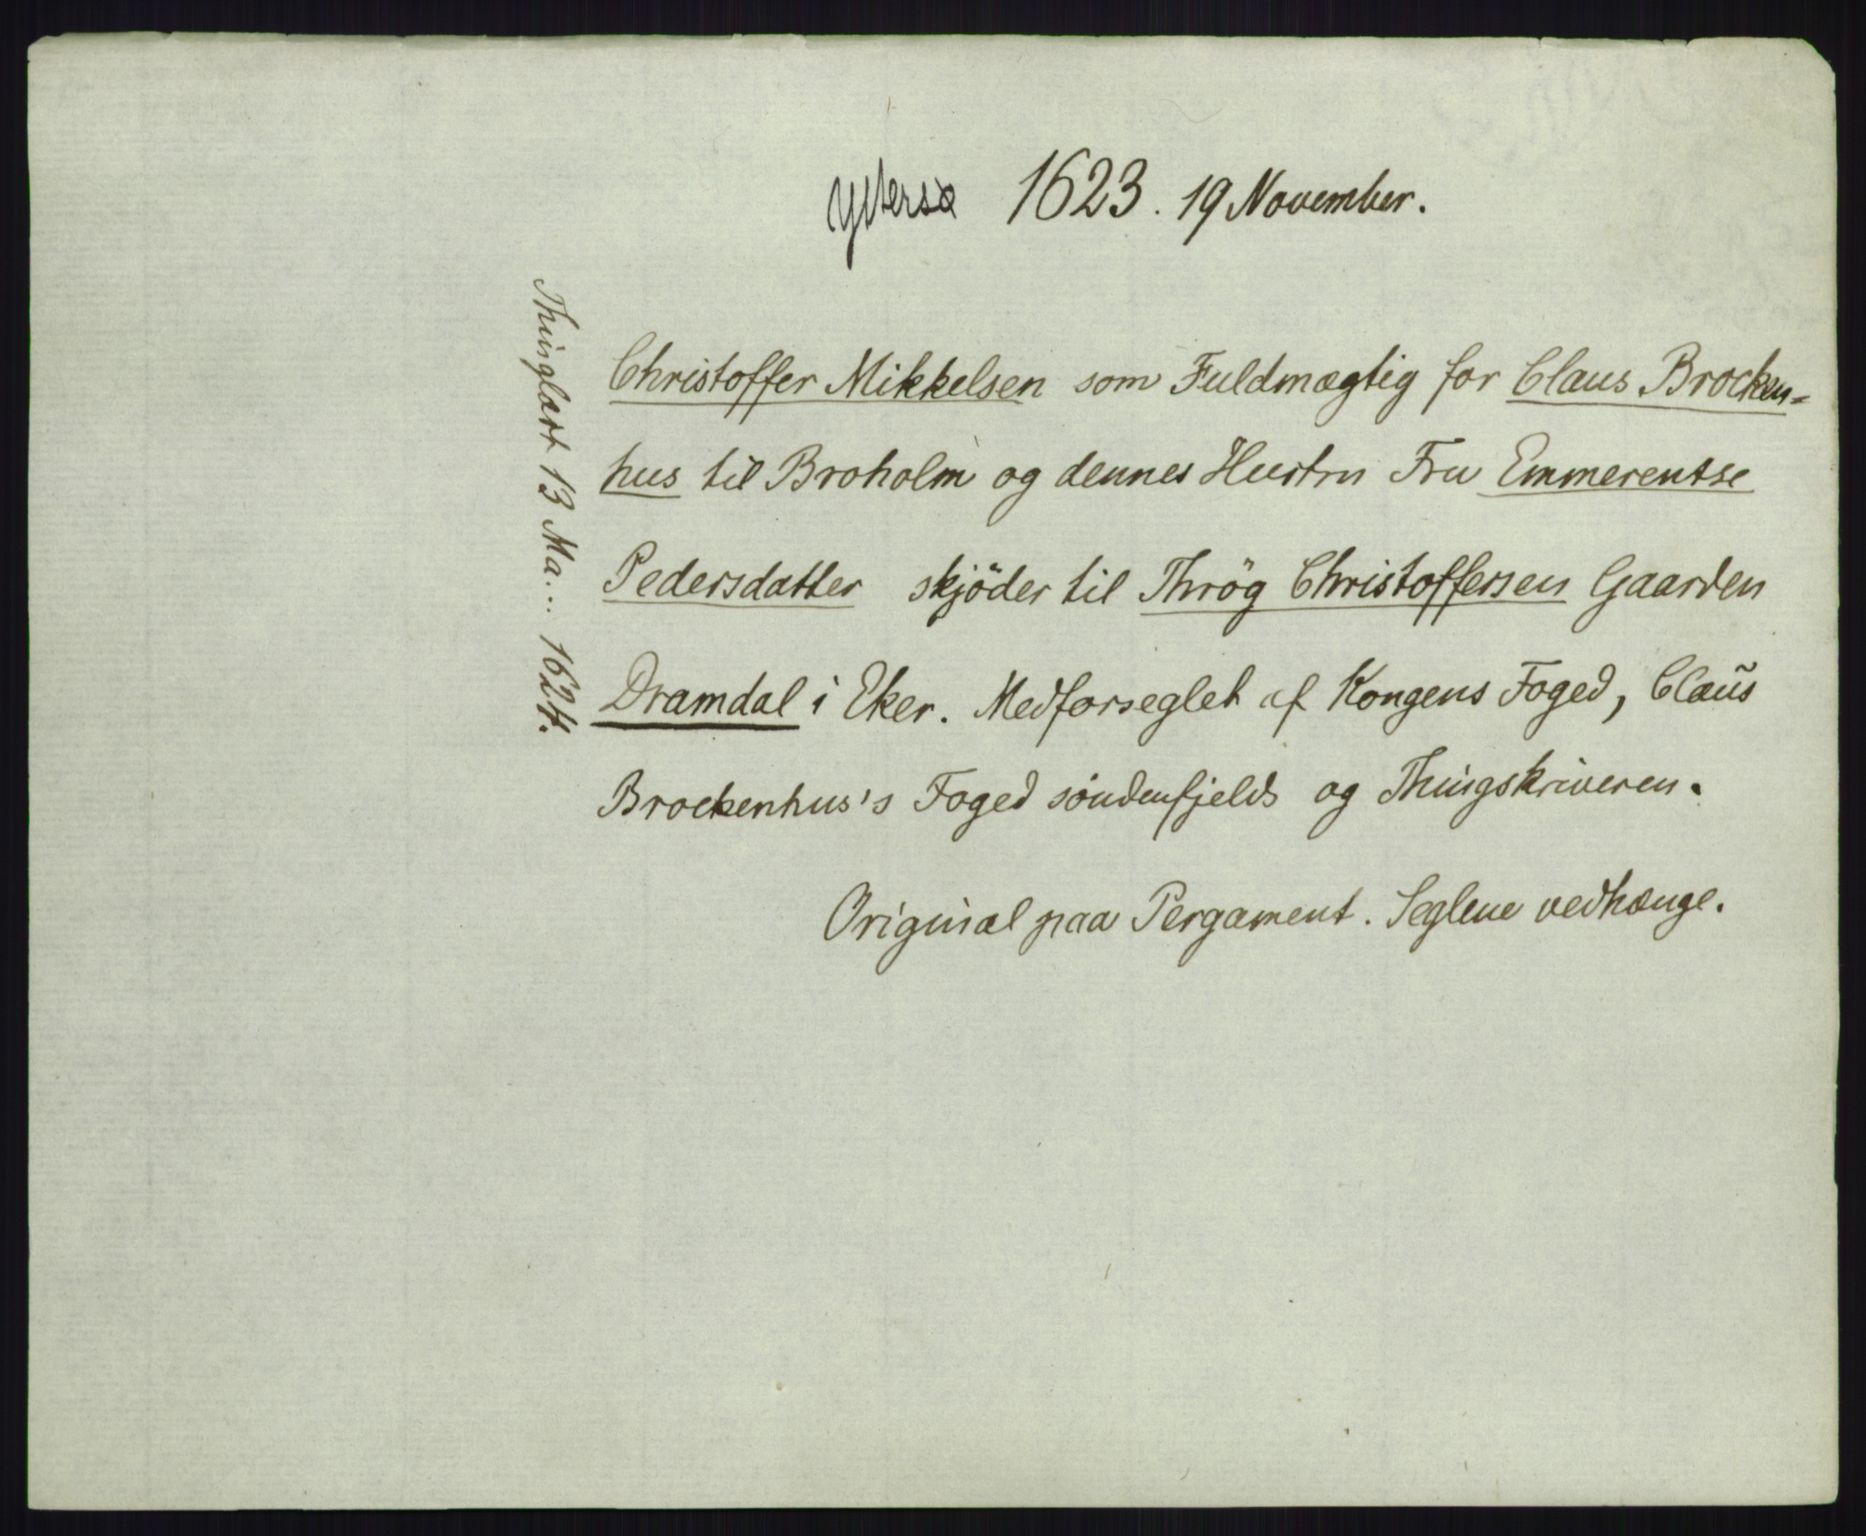 Ytterso 1623. 19 November.
Christoffer Mikkelsen som Fuldmægtig for Claus Brocken-
hus til Broholm og dennes Hustru Fru Emmerentse
Pedersdatter skjöder til Thrög Christoffersen Gaarden
Dramdal i Eker. Medforseglet af Kongens Foged, Claus
Brockenhus's Foged söndenfjelds og Thingskriveren.
Original paa Pergament. Seglene vedhænge.
Thinglæst 13 Ma... 1624.